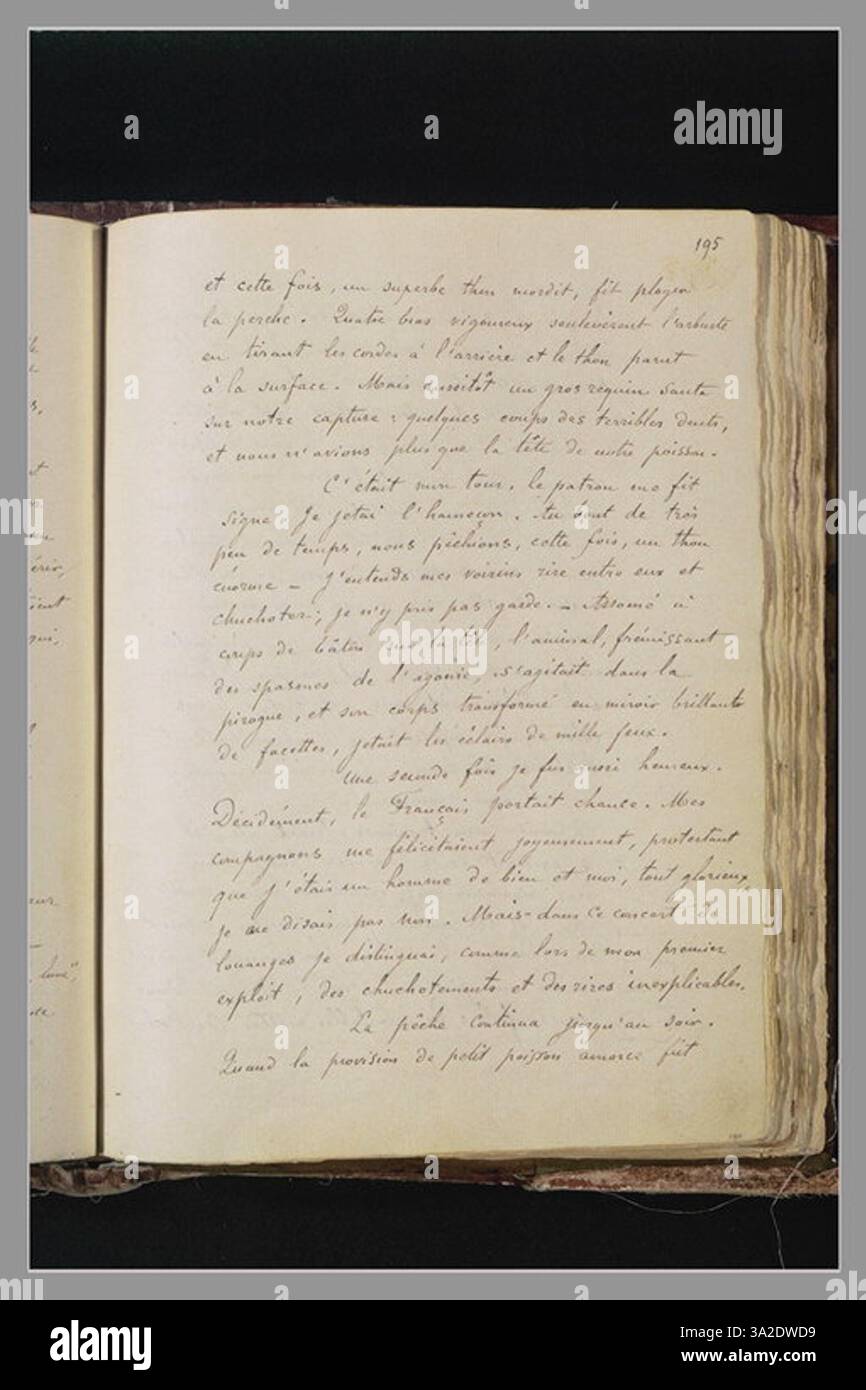 195
et cette fois, un superbe thon mordit, fit ployer
la perche. Quatre bras vigoureux soulevèrent l'arbuste
en tirant les cordes à l'arrière et le thon parut
à la surface. Mais aussitôt un gros requin sauta
sur notre capture : quelques coups des terribles dents,
et nous n'avions plus que la tête de notre poisson.
C'était mon tour. le patron me fit
signe. Je jetai l'hameçon. Au bout de très
peu de temps, nous pêchions, cette fois, un thon
énorme – J'entends mes voisins rire entre eux et
chuchoter; je n'y pris pas garde. – Assomé à
coups de bâton sur la tête, l'animal, frémissant
des spasmes de l'agonie, s'agitait dans la
pirogue, et son corps transformé en miroir brillante
de facettes, jetait les éclairs de mille feux.
Une seconde fois je fus aussi heureux.
Décidément, le Français portait chance. Mes
compagnons me félicitaient joyeusement, protestant
que j'étais un homme de bien et moi, tout glorieux,
je ne disais pas non. Mais – dans ce concert de
louanges je distinguai, comme lors de mon premier
exploit, des chuchotements et des rires inexplicables.
La pêche continua jusqu'au soir.
Quand la provision de petit poisson amorce fût
a a alamy
alamy
Image ID: 3A2DWD9
www.alamy.com